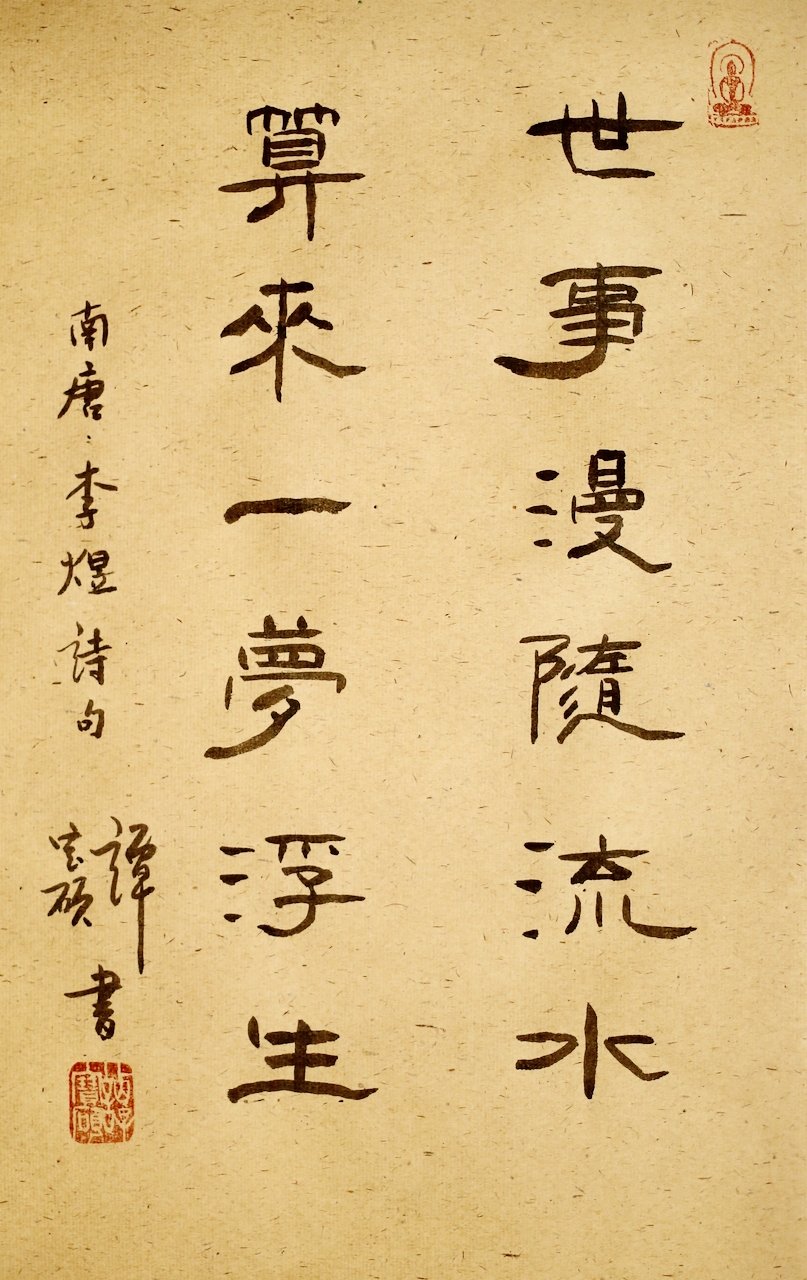 世事漫隨流水
算來一夢浮生
南唐:李煜詩句
譚
碩書